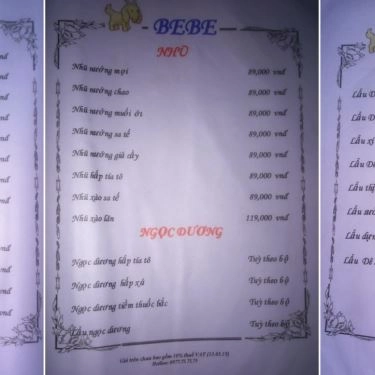 - BEBE -
NHŨ
Nhũ nướng mọi 89,000 vnđ
Nhũ nướng chao 89,000 vnđ
Nhũ nướng muối ớt 89,000 vnđ
Nhũ nướng sa tế 89,000 vnđ
Nhũ nướng giả cầy 89,000 vnđ
Nhũ hấp tía tô 89,000 vnđ
Nhũ xào sa tế 89,000 vnđ
Nhũ xào lăn 119,000 vnđ
NGỌC DƯƠNG
Ngọc dương hấp tía tô Tuỳ theo bộ
Ngọc dương hấp xả Tuỳ theo bộ
Ngọc dương tiềm thuốc bắc Tuỳ theo bộ
Lẩu ngọc dương Tuỳ theo bộ
Giá trên chưa bao gồm 10% thuế VAT
Hotline:
Lẩu
Lẩu
Lẩu
Lẩu
Lẩu
Lẩu
Lẩu
Lẩu